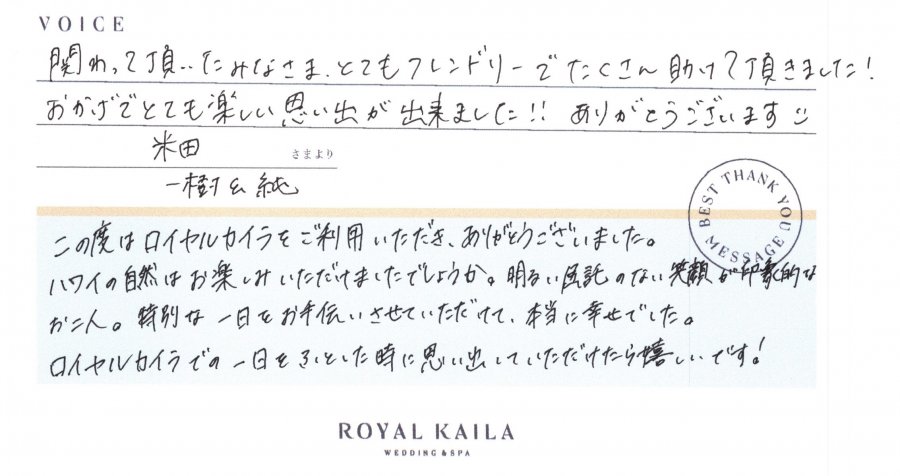 VOICE
関わって頂いたみなさま、とてもフレンドリーでたくさん助けて頂きました！
おかげでとても楽しい思い出が出来ました!! ありがとうございます
米田
さまより
一樹&純
BEST THANK YOU MESSAGE
この度はロイヤルカイラをご利用いただき、ありがとうございました。
ハワイの自然はお楽しみいただけましたでしょうか。明るい屈託のない笑顔が印象的な
お二人。特別な一日をお手伝いさせていただけて、本当に幸せでした。
ロイヤルカイラでの一日をふとした時に思い出していただけたら嬉しいです！
ROYAL KAILA
WEDDING & SPA